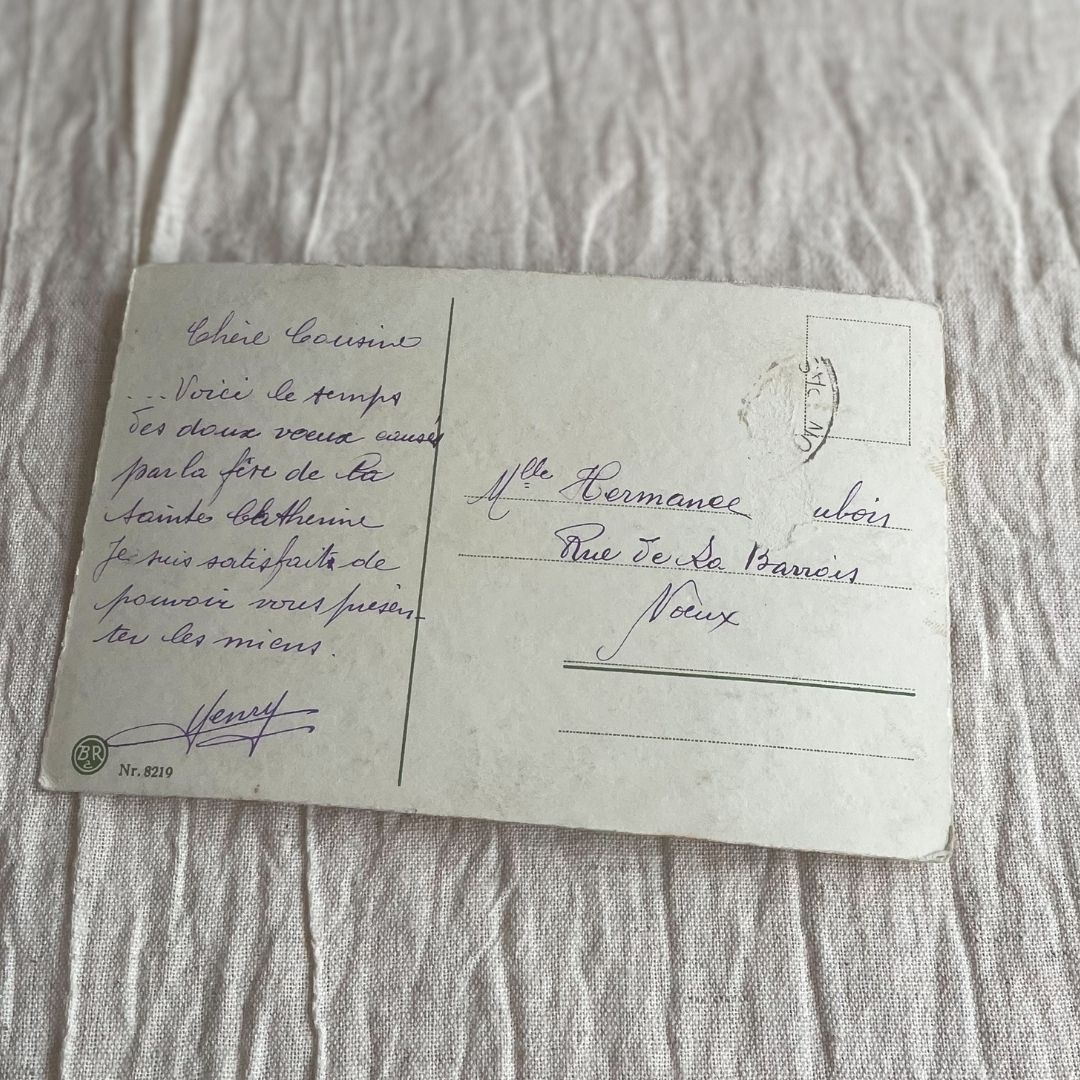 Chère Cousine
... Voici le temps
des doux voeux causés
par la fête de la
Sainte Catherine
Je suis satisfaite de
pouvoir vous présen-
ter les miens.
Henry
BR
Nr. 8219
Mlle Hermance ubois
Rue de La Barrois
Noeux